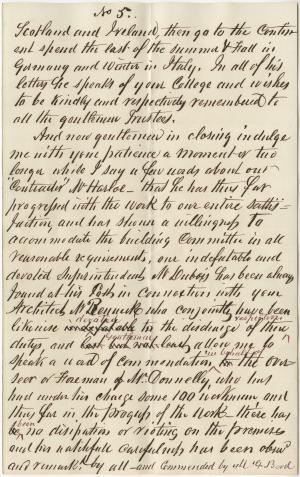 No 5.
Scotland and Ireland, then go to the Contin
ent spend the last of the summer & Fall in
Germany and Winter in Italy. In all of his
letters he speaks of your College and wishes
to be Kindly and respectively remembered to
all the gentlemen Trustees.
And now gentlemen in closing indulge
me with your patience a moment or two
longer while I say a few words about our
"Contractor" Mr Harloe – that he has thus far
progressed with the work to our entire satis=
faction, and has shown a willingness to
accommodate the building Committee in all
reasonable requirements, our indefatable and
devoted Superintendent Mr Dubois has been always
found at his Post, in connection with your
Architect Mr Renwick who conjointly have been
likewise devoted in the discharge of their
duty and last but not least, Gentlemen allow me to
speak a word of commendation, in behalf of the over
seer or Foreman of Mr Donnelly, who has
had under his charge some 100 workmen and
thus far in the progress of the work there has
been no disipation or rioting on the premises
and his watchfull carefulness has been obser
and remark by all – and commended by all